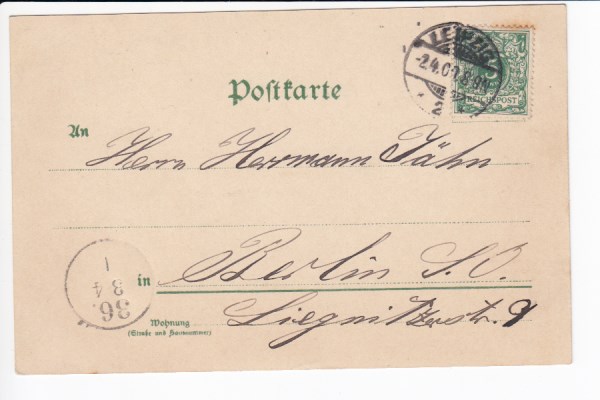 LEIPZIG
-2.4.0
8-9N
2
REICHSPOST
Postkarte
An
Herrn Herrmann Jähn
in Berlin S.O.
Wohnung
(Straße und Hausnummer)
Liegnitzerstr. 9
36.
3 4
1